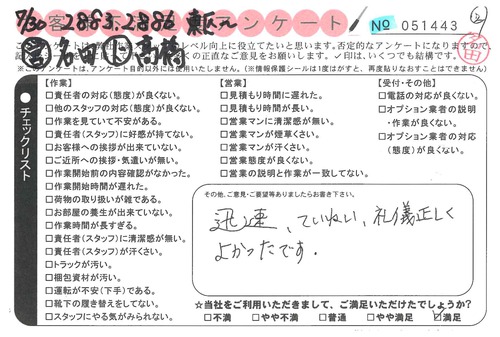 7/30 2883.2886 東京
お客様アンケート
№ 051443
名田 高橋
レベル向上に役立てたいと思います。否定的なアンケートになりますので、
くの正直なご意見をお願いします。✓印は、いくつでも結構です。
※このアンケートは、アンケート目的以外には使用いたしません。(※情報保護シールは1度はがすと、再度貼りなおすことはできません)
●チェックリスト
【作業】
□責任者の対応(態度)が良くない。
□他のスタッフの対応(態度)が良くない。
□作業を見ていて不安がある。
□責任者(スタッフ)に好感が持てない。
□お客様への挨拶が出来ていない。
□ご近所への挨拶・気遣いが無い。
□作業開始前の内容確認がなかった。
□作業開始時間が遅れた。
□荷物の取り扱いが雑である。
□お部屋の養生が出来ていない。
□作業時間が長すぎる。
□責任者(スタッフ)に清潔感が無い。
□責任者(スタッフ)が汗くさい。
□トラックが汚い。
□梱包資材が汚い。
□運転が不安(下手)である。
□靴下の履き替えをしてない。
□スタッフにやる気がみられない。
【営業】
□見積もり時間に遅れた。
□見積もり時間が長い。
□営業マンに清潔感が無い。
□営業マンが煙草くさい。
□営業マンが汗くさい。
□営業態度が良くない。
□営業の説明と作業が一致してない。
【受付・その他】
□電話の対応が良くない。
□オプション業者の説明
・作業が良くない。
□オプション業者の対応
(態度)が良くない。
その他、ご意見・ご要望等ありましたらお書き下さい。
迅速、ていねい、礼儀正しく
よかったです。
☆当社をご利用いただきまして、ご満足いただけたでしょうか?
□不満 □やや不満 □普通 □やや満足 ☑満足